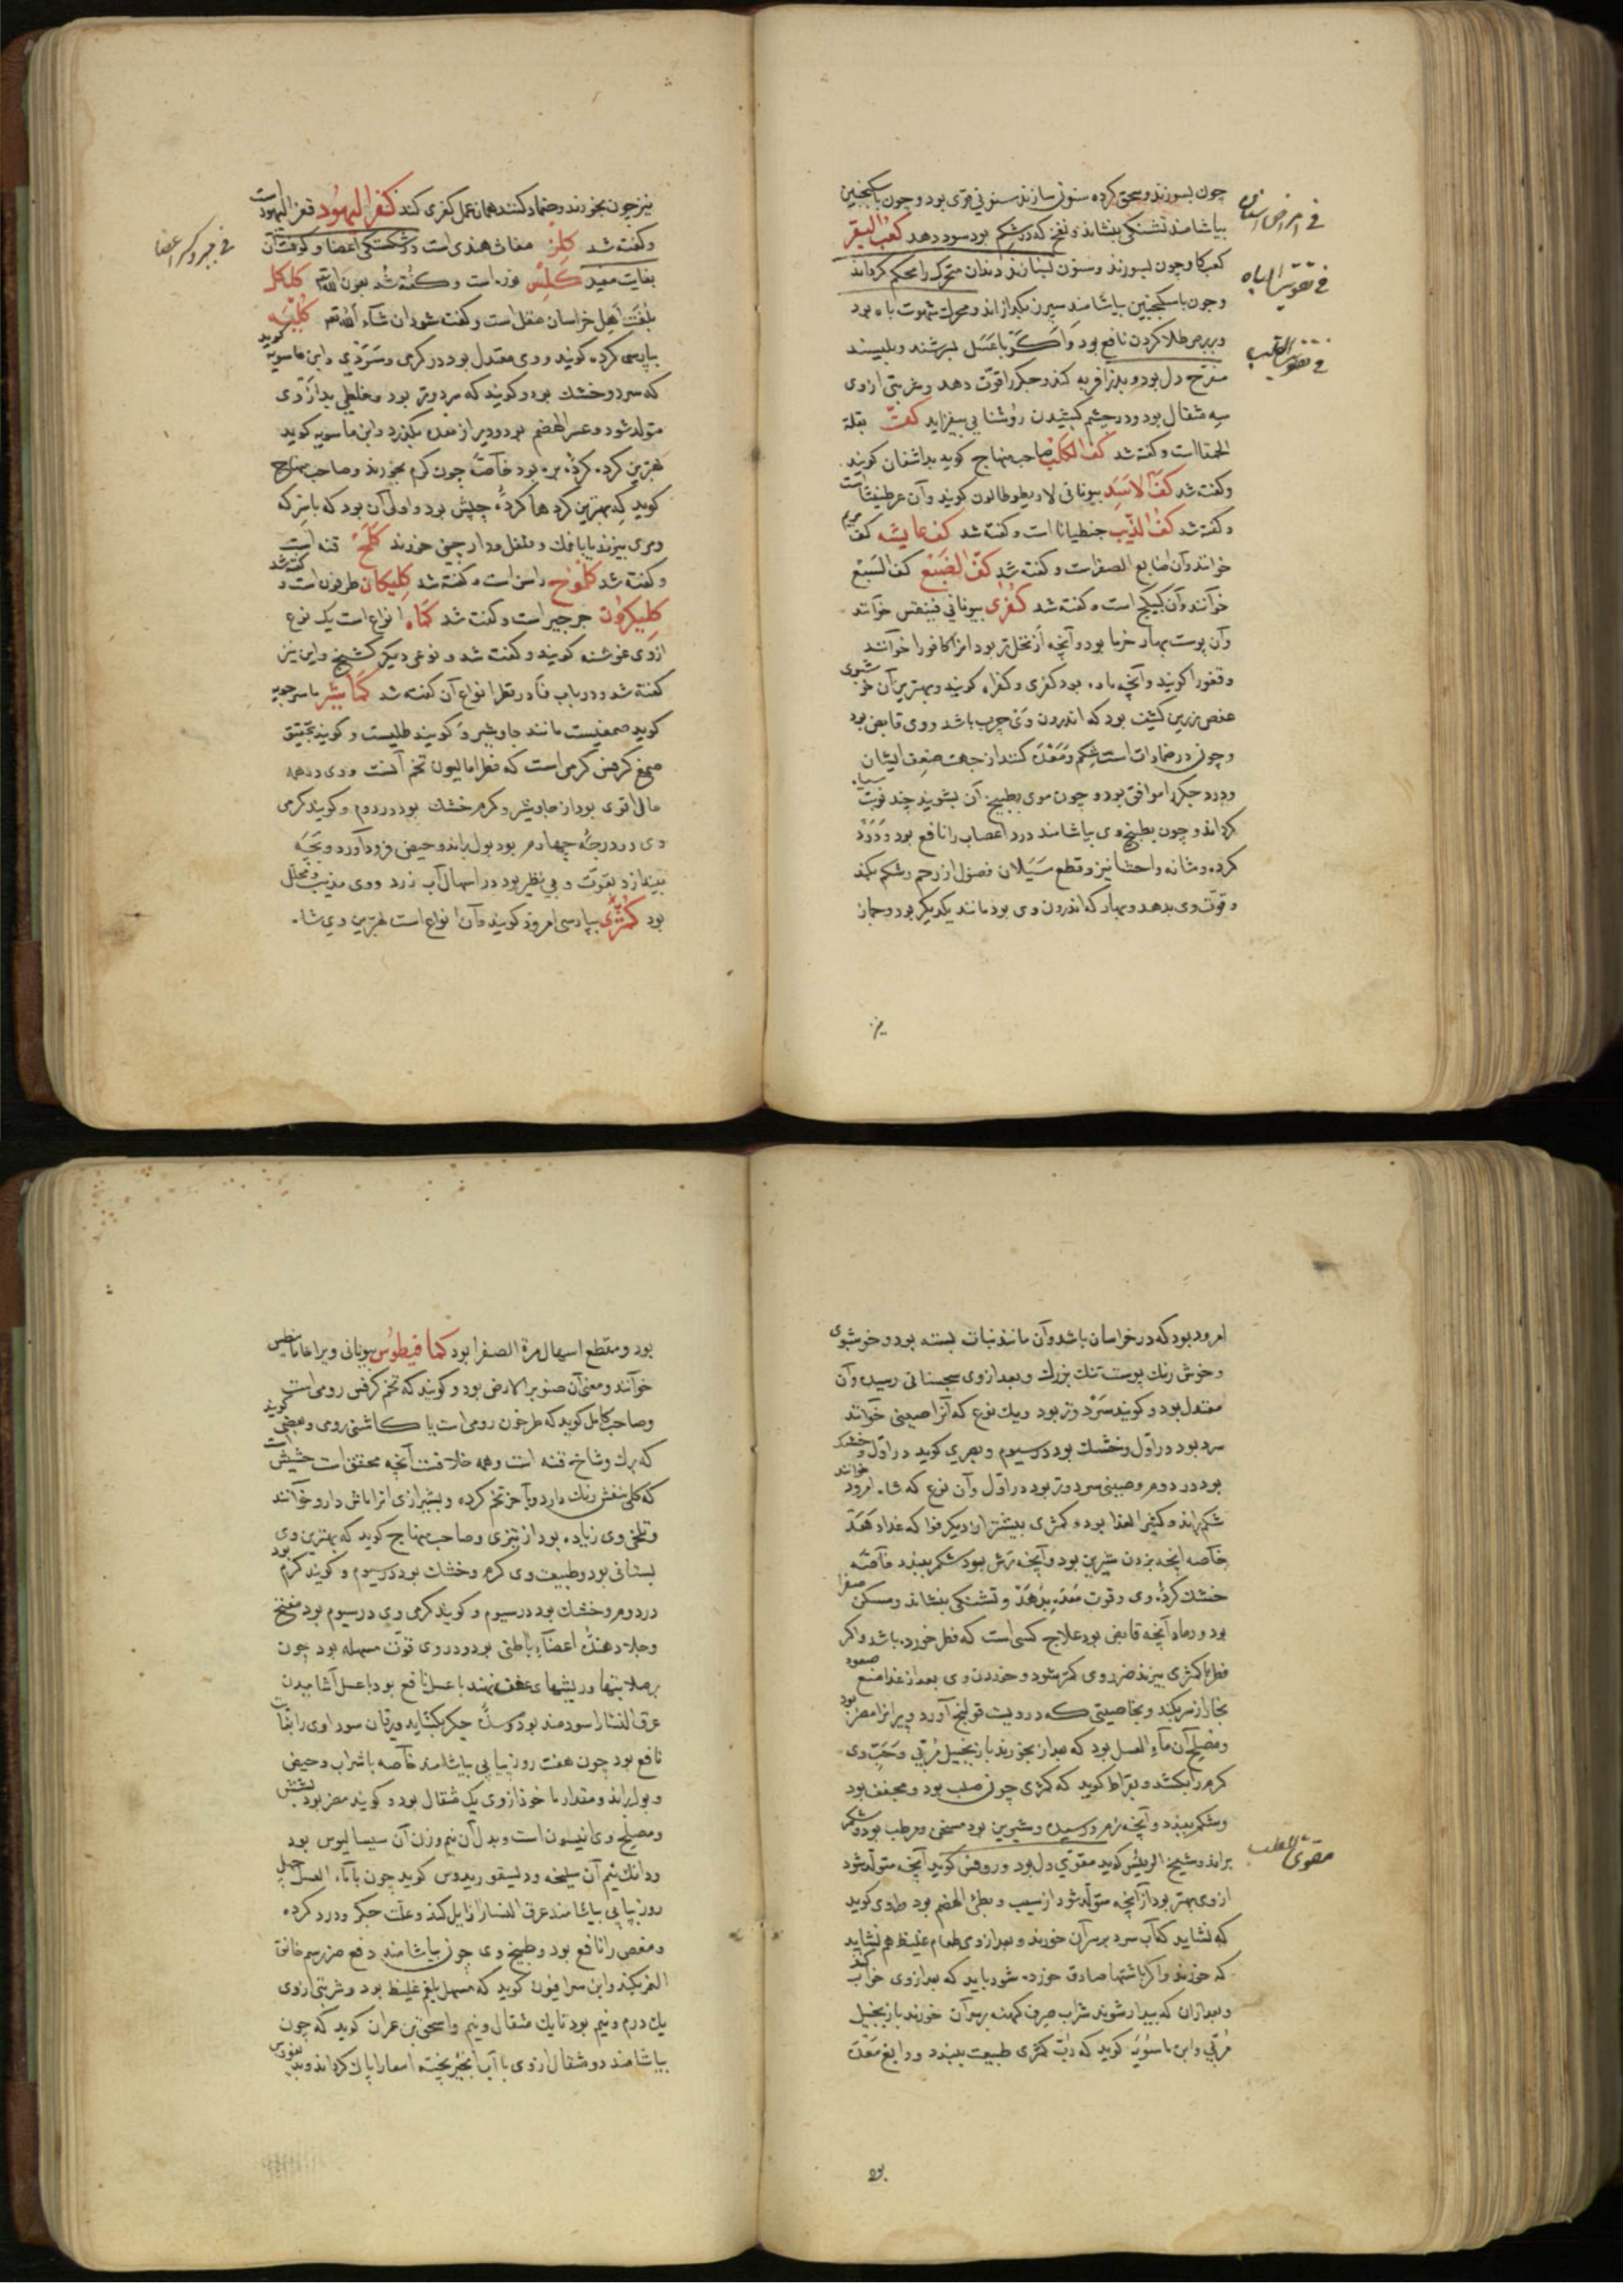 چون بسوزند و سحق کرده سنونی سازند سنونی قوی بود و چون با سکنجبین
بیاشامند تشنگی بنشاند و نفخ که در شکم بود سود دهد کعب البقر
کعب کاو چون بسوزند و سنون لبنان ند دندان متحرک را محکم کرداند
و چون با سکنجبین بیاشامند سپرز بکدازاند و محرک شهوت باه بود
و بر برص طلا کردن نافع بود و اکر با عسل بسرشند و بلیسند
مفرح دل بود و بدنرا فربه کند و جکر را قوت دهد و شربتی ازوی
سه مثقال بود و در چشم کشیدن روشنایی بیفزاید کفت بقلة
الحمقا است و کفته شد کف الکلب صاحب منهاج کوید بداشغان کویند
و کفته شد کف الاسد بیونانی لاوبطوطالون کویند و آن عرطنیثا است
و کفته شد کف الذیب جنطیانا است و کفته شد کف عایشه کف مریم
خوانند و آن اصابع الصفر است و کفته شد کف الضبع کف السبع
خوانند و آن کبیکج است و کفته شد کفری بیونانی فینقس خوانند
و آن پوست بهار خرما بود و آنچه از نخل نر بود انرا کافورا خوانند
و قفورا کویند و آنچه ماده بود کفری و کفراه کویند و بهترین آن خوشبوی
عفص رزین کثیف بود که اندرون وی چرب باشد و وی قابض بود
و چون در ضمادات استعمال شکم و معده کنند از جهت ضعف ایشان
و درد جکر را موافق بود و چون موی بطبیخ آن بشویند چند نوبت سیاه
کرداند و چون بطبیخ وی بیاشامند درد اعصاب را نافع بود و درد
کرده و مثانه و احشا نیز و قطع سیلان فضول از رحم و شکم بکند
و قوت وی بدهد و بهار که اندرون وی بود مانند یکدیکر بود و جمار
نیز
فی امراض اسنان
فی تقویت الباه
فی تقویت القلب
نیز چون بخورند و ضماد کنند همان عمل کفری کند کفر الیهود قفر الیهود است
و کفته شد کلز مغاث هندی است در شکستکی اعضا و کوفت آن
بغایت مفید کلس نوره است و کفته شد بعون الله تعالی کلکل
بلغت اهل خراسان مقل است و کفته شود ان شاء الله تعم کلیه
بپارسی کرده کویند و وی معتدل بود در کرمی و سردی و ابن ماسویه کوید
که سرد و خشک بود و کویند که سرد و تر بود و خلطی بد ازوی
متولد شود و عسر الهضم بود و دیر از معده بکذرد و ابن ماسویه کوید
بهترین کرده کرده بره بود خاصه چون کرم بخورند و صاحب منهاج
کوید که بهترین کرده ها کرده چپش بود و اولی آن بود که با سرکه
و مری بپزند یا با نمک و فلفل و دارچینی خورند کلخ قنه است
و کفته شد کلوخ راسن است و کفته شد کلیکان طرخون است و کفته شد
کلیکرون جرجیر است و کفته شد کماه انواع است یک نوع
ازوی غوشنه کویند و کفته شد و نوعی دیکر کشنج و این نیز
کفته شد و در باب فا در فطر انواع آن کفته شد کماشیر ماسرجویه
کوید صمغیست مانند جاوشیر و کویند طلیست و کویند بتحقیق
صمغ کرفس کرمی است که فطراسالیون تخم آنست و وی در همه
حالی اقوی بود از جاوشیر و کرم و خشک بود در دوم و کویند کرمی
وی در درجه چهارم بود بول براند و حیض فرود آورد و بچه
بیندازد بقوت و بی نظیر بود در اسهال آب زرد و وی مذیب و محلل
بود کمثری بپارسی امرود کویند و آن انواع است بهترین وی شاه
فی جبر و کسر اعضا
امرود بود که در خراسان باشد و آن مانند نبات بسته بود و خوشبوی
و خوش رنک پوست تنک بزرک و بعد ازوی سجستانی رسیده و آن
معتدل بود و کویند سرد و تر بود و یک نوع که آنرا صینی خوانند
سرد بود در اول و خشک بود در سیوم و بصری کوید در اول و خشک
بود در دوم و صینی سرد و تر بود در اول و آن نوع که شاه امرود خوانند
شکم براند و کثیر الغذا بود و کمثری بیشتر از دیکر فواکه غذا دهد
خاصه آنچه بزرک شیرین بود و آنچه ترش بود شکم ببندد خاصه
خشک کرده وی و قوت معده بدهد و تشنکی بنشاند و مسکن صفرا
بود و رماد آنچه قابض بود علاج کسی است که فطر خورده باشد و اکر
فطر با کمثری بپزند ضرر وی کمتر شود و خوردن وی بعد از غذا منع صعود
بخار از سر بکند و بخاصیتی که در ویست قولنج آورد و پیرانرا مضر بود
و مصلح آن ماء العسل بود که بعد از آن بخورند با زنجبیل مربی و حب وی
کرم را بکشد و بقراط کوید که کمثری چون صلب بود و مجفف بود
و شکم ببندد و آنچه نرم و رسیده و شیرین بود مسخن و مرطب بود و شکم
براند و شیخ الرییس کوید مقوی دل بود و روفس کوید آنچه متولد شود
ازوی بهتر بود از آنچه متولد شود از سیب و بطئ الهضم بود و طاوی کوید
که نشاید که آب سرد بر سر آن خورند و بعد ازوی طعام غلیظ هم نشاید
که خورند و اکر باشتها صادق خورده شود باید که بعد ازوی خواب کنند
و بعد ازان که بیدار شوند شراب صرف کهنه بر سر آن خورند با زنجبیل
مربی و ابن ماسویه کوید که رب کمثری طبیعت ببندد و دابغ معده
بود
مقوی القلب
بود و مقطع اسهال مرة الصفرا بود کمافیطوس بیونانی ویرا خاماسطیس
خوانند و معنی آن صنوبر الارض بود و کویند که تخم کرفس رومی است
و صاحب کامل کوید که طرخون رومی است یا کاشنی رومی و بعضی کویند
که برک و شاخ قنه است و همه خلافست آنچه محقق است حشیش است
که کل بنفش رنک دارد و آخر تخم کرده و بشیرازی انرا ماش دارو خوانند
و تلخی وی زیاده بود از تیزی و صاحب منهاج کوید که بهترین وی
بستانی بود و طبیعت وی کرم و خشک بود در سیوم و کویند کرم بود
در دوم و خشک بود در سیوم و کویند کرمی وی در سیوم بود مفتح
و جلا دهنده اعضاء باطنی بود و در وی قوت مسهله بود چون
بر صلابتها و ریشهای عفن نهند با عسل نافع بود با عسل آشامیدن
عرق النسا را سودمند بود و سده جکر بکشاید و یرقان سوداوی را بغایت
نافع بود چون هفت روز پیاپی بیاشامند خاصه با شراب و حیض
و بول براند و مقدار ماخوذ ازوی یک مثقال بود و کویند مضر بود بشش
و مصلح وی انیسون است و بدل آن نیم وزن آن سیسالیوس بود
و دانک نیم آن سلیخه و دیسقوریدوس کوید چون با ماء العسل چهل
روز پیاپی بیاشامند عرق النسا را زایل کند و علت جکر و درد کرده
و مغص را نافع بود و طبیخ وی چون بیاشامند دفع ضرر سم خانق
النمر بکند و ابن سرافیون کوید که مسهل بلغم غلیظ بود و شربتی ازوی
یک درم و نیم بود تا یک مثقال و نیم و اسحق بن عمران کوید که چون
بیاشامند دو مثقال ازوی با آب انجیر پخته امعا را پاک کرداند و بدیغورس